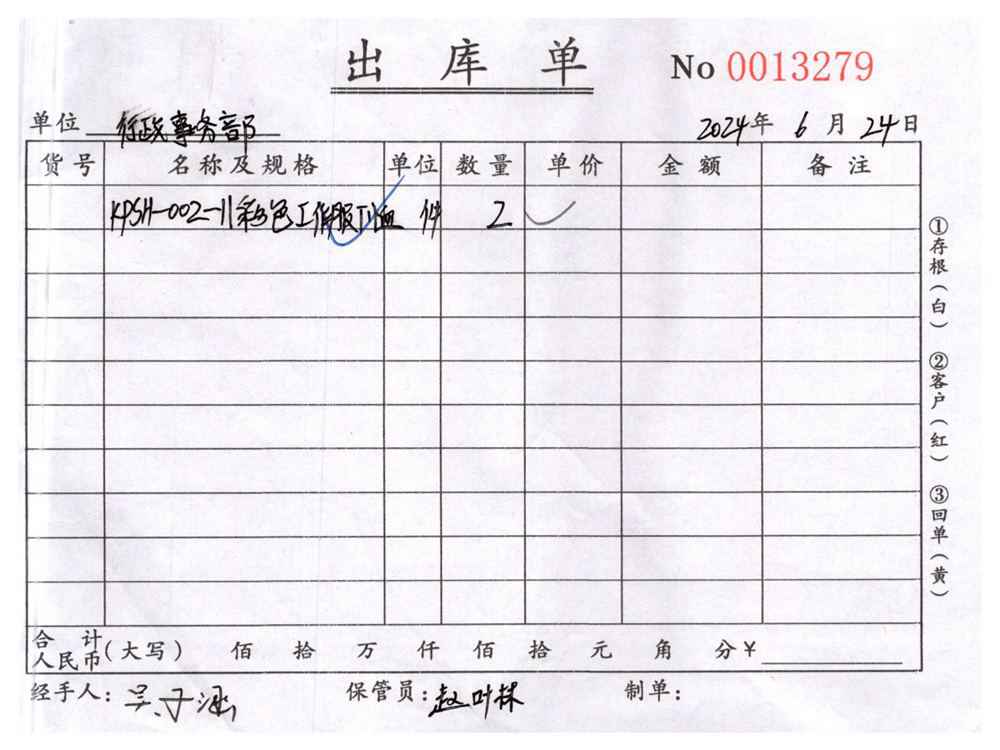 出库单
No 0013279
单位 行政事务部
2024年 6月 24日
货号 名称及规格 单位 数量 单价 金额 备注
KPSH-002-11彩色工作服T恤 件 2
合计人民币(大写) 佰 拾 万 仟 佰 拾 元 角 分¥
经手人: 吴子涵 保管员: 赵叶林 制单:
①存根(白) ②客户(红) ③回单(黄)